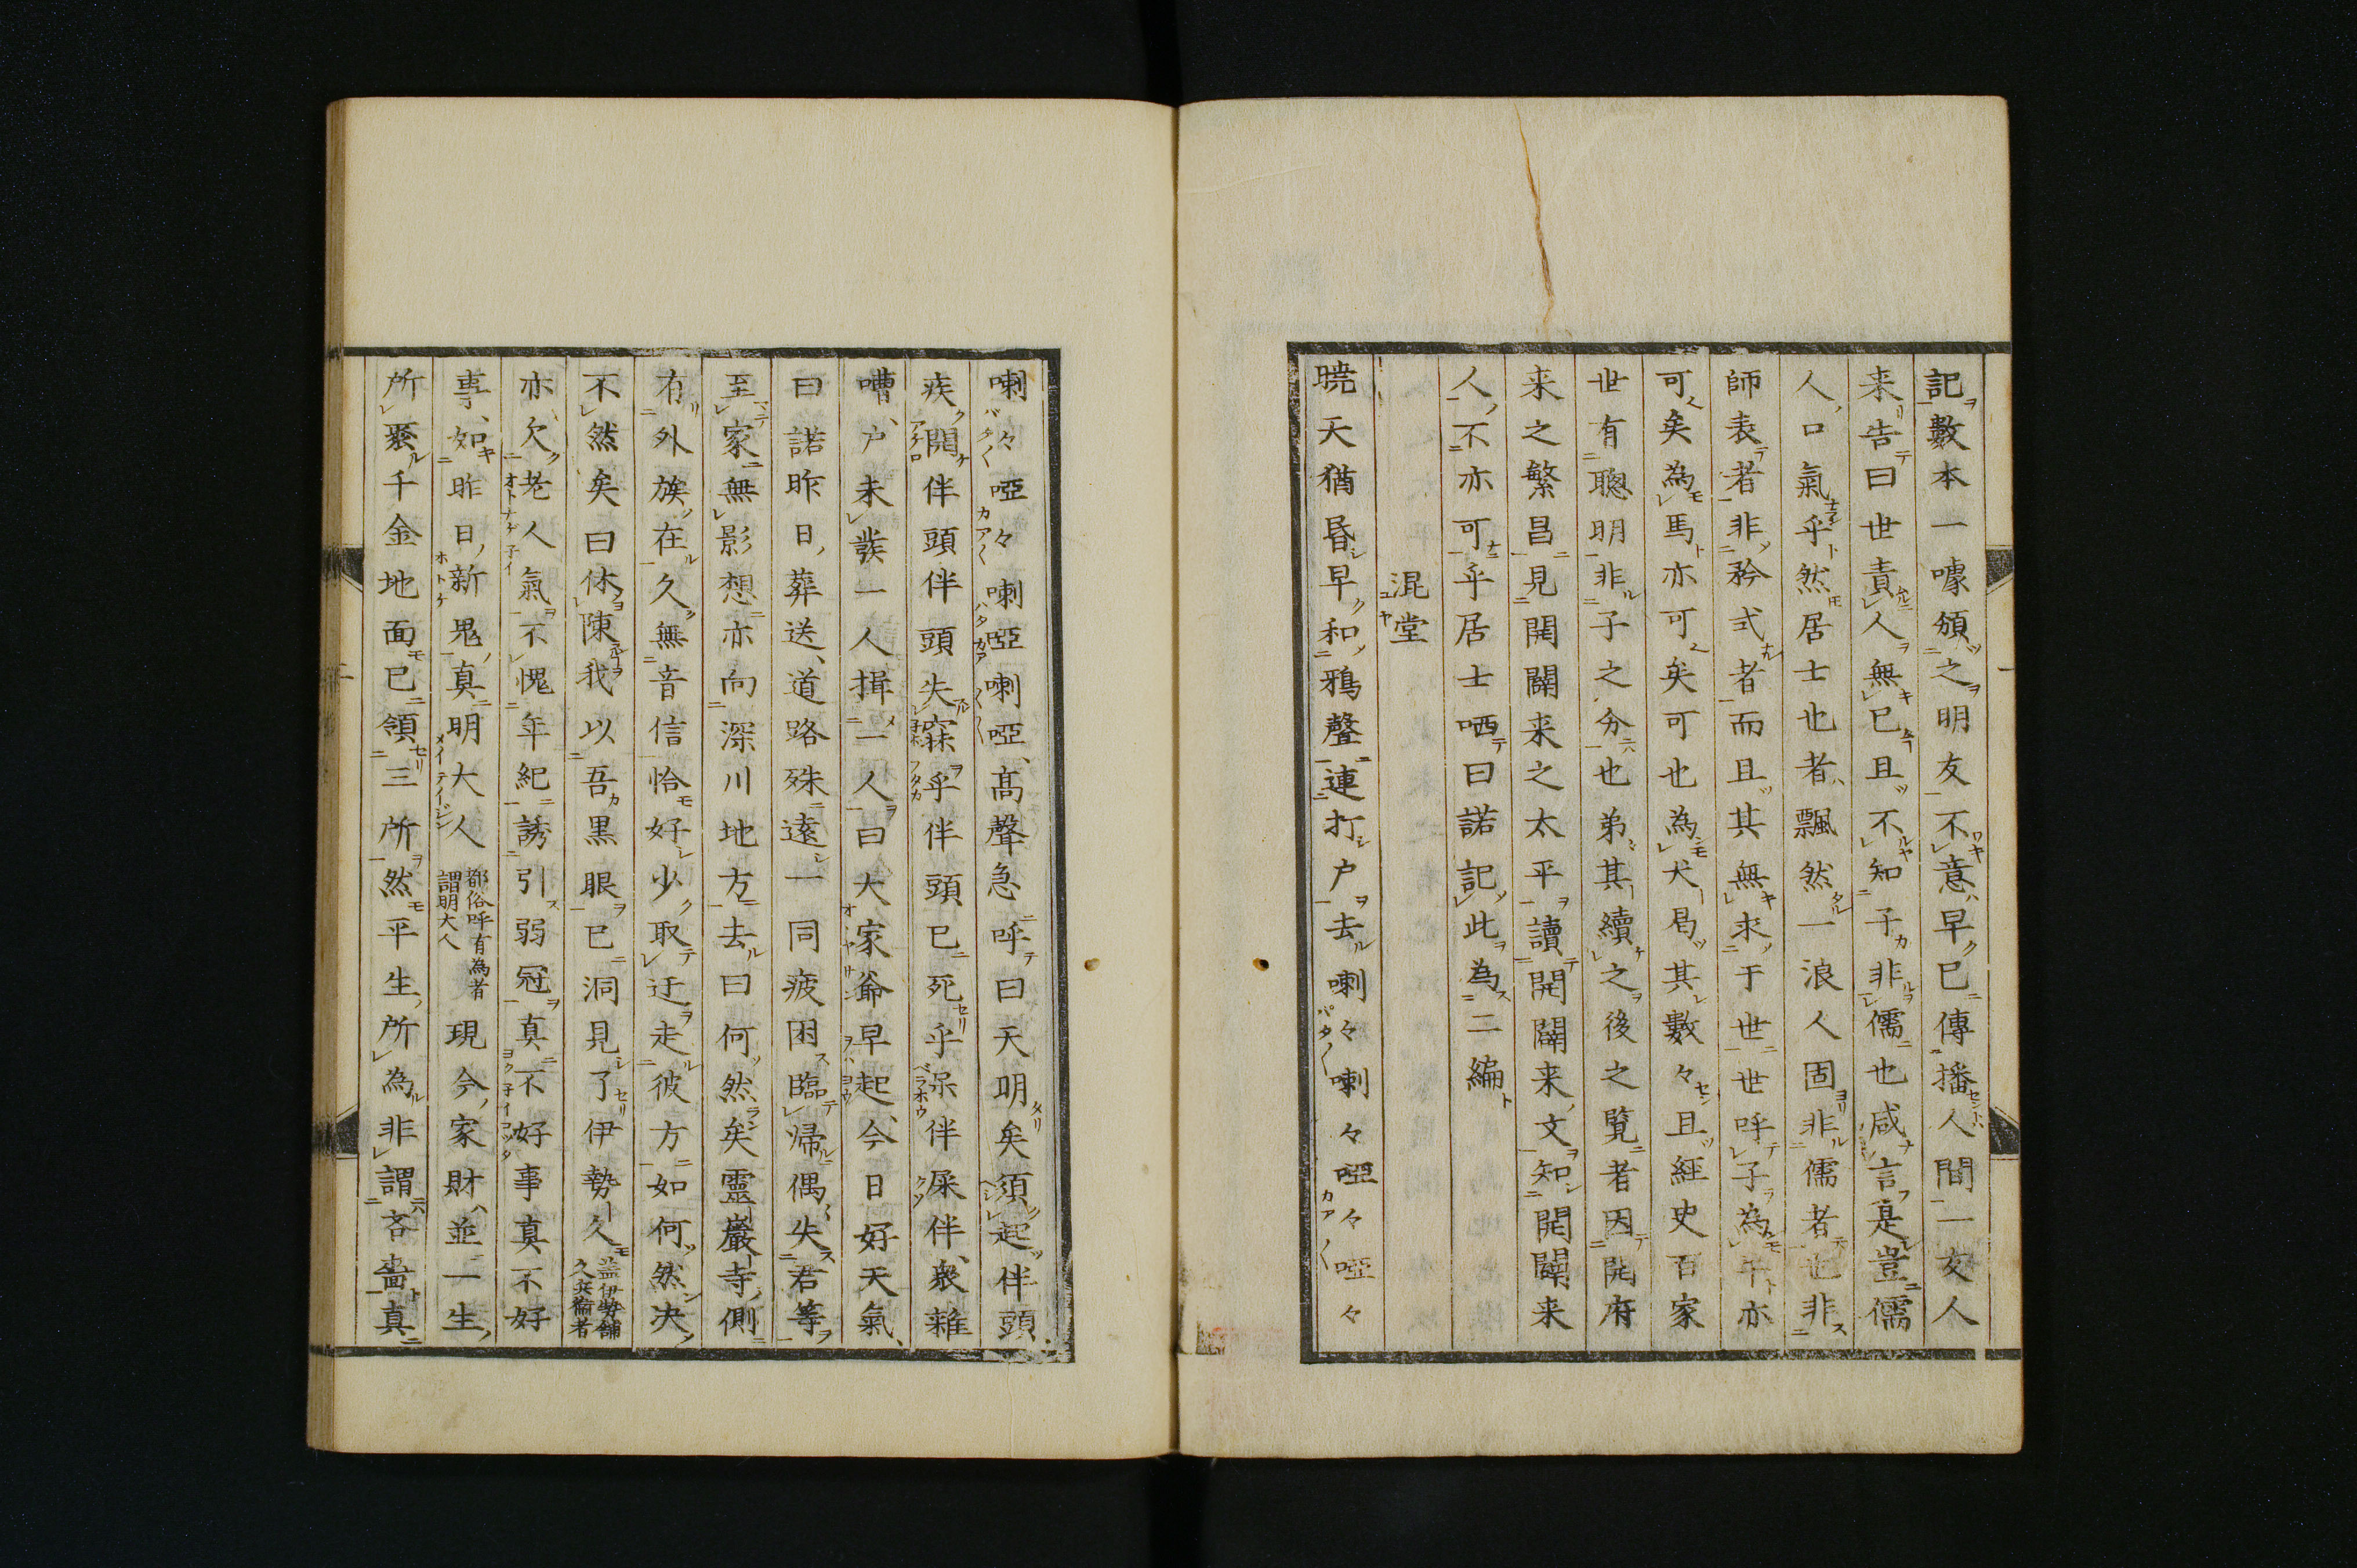 記數本一噱頒之明友不意早已傳播人間一友人
来告曰世責人無已且不知子非儒也咸言是豈儒
人口氣乎然居士也者飄然一浪人固非儒者也非
師表者非矜式者而且其無求于世世呼子為牛亦
可矣為馬亦可矣可也為犬曷其數々且經史百家
世有聰明非子之分也弟其續之後之覧者因開府
来之繁昌見開闢来之太平讀開闢来文知開闢来
人不亦可乎居士哂曰諾記此為二編
混堂
暁天猶昏早和鴉聲連打戸去喇々喇々啞々啞々
喇々啞々喇啞喇啞高聲急呼曰天明矣須起伴頭
疾開伴頭伴頭失寐乎伴頭已死乎呆伴屎伴衆雜
嘈戸未發一人揖一人曰大家爺早起今日好天氣
曰諾昨日葬送道路殊遠一同疲困臨帰偶失君等
至家無影想亦向深川地方去曰何然矣靈巖寺側
有外族在久無音信恰好少取迂走彼方如何然决
不然矣曰休陳我以吾黒眼已洞見了伊勢久蓋伊勢舗久兵衛者
亦欠老人氣不愧年紀誘引弱冠真不好事真不好
事如昨日新鬼真明大人都俗呼有為者謂明大人現今家財並一生
所聚千金地面已領三所然平生所為非謂吝嗇真